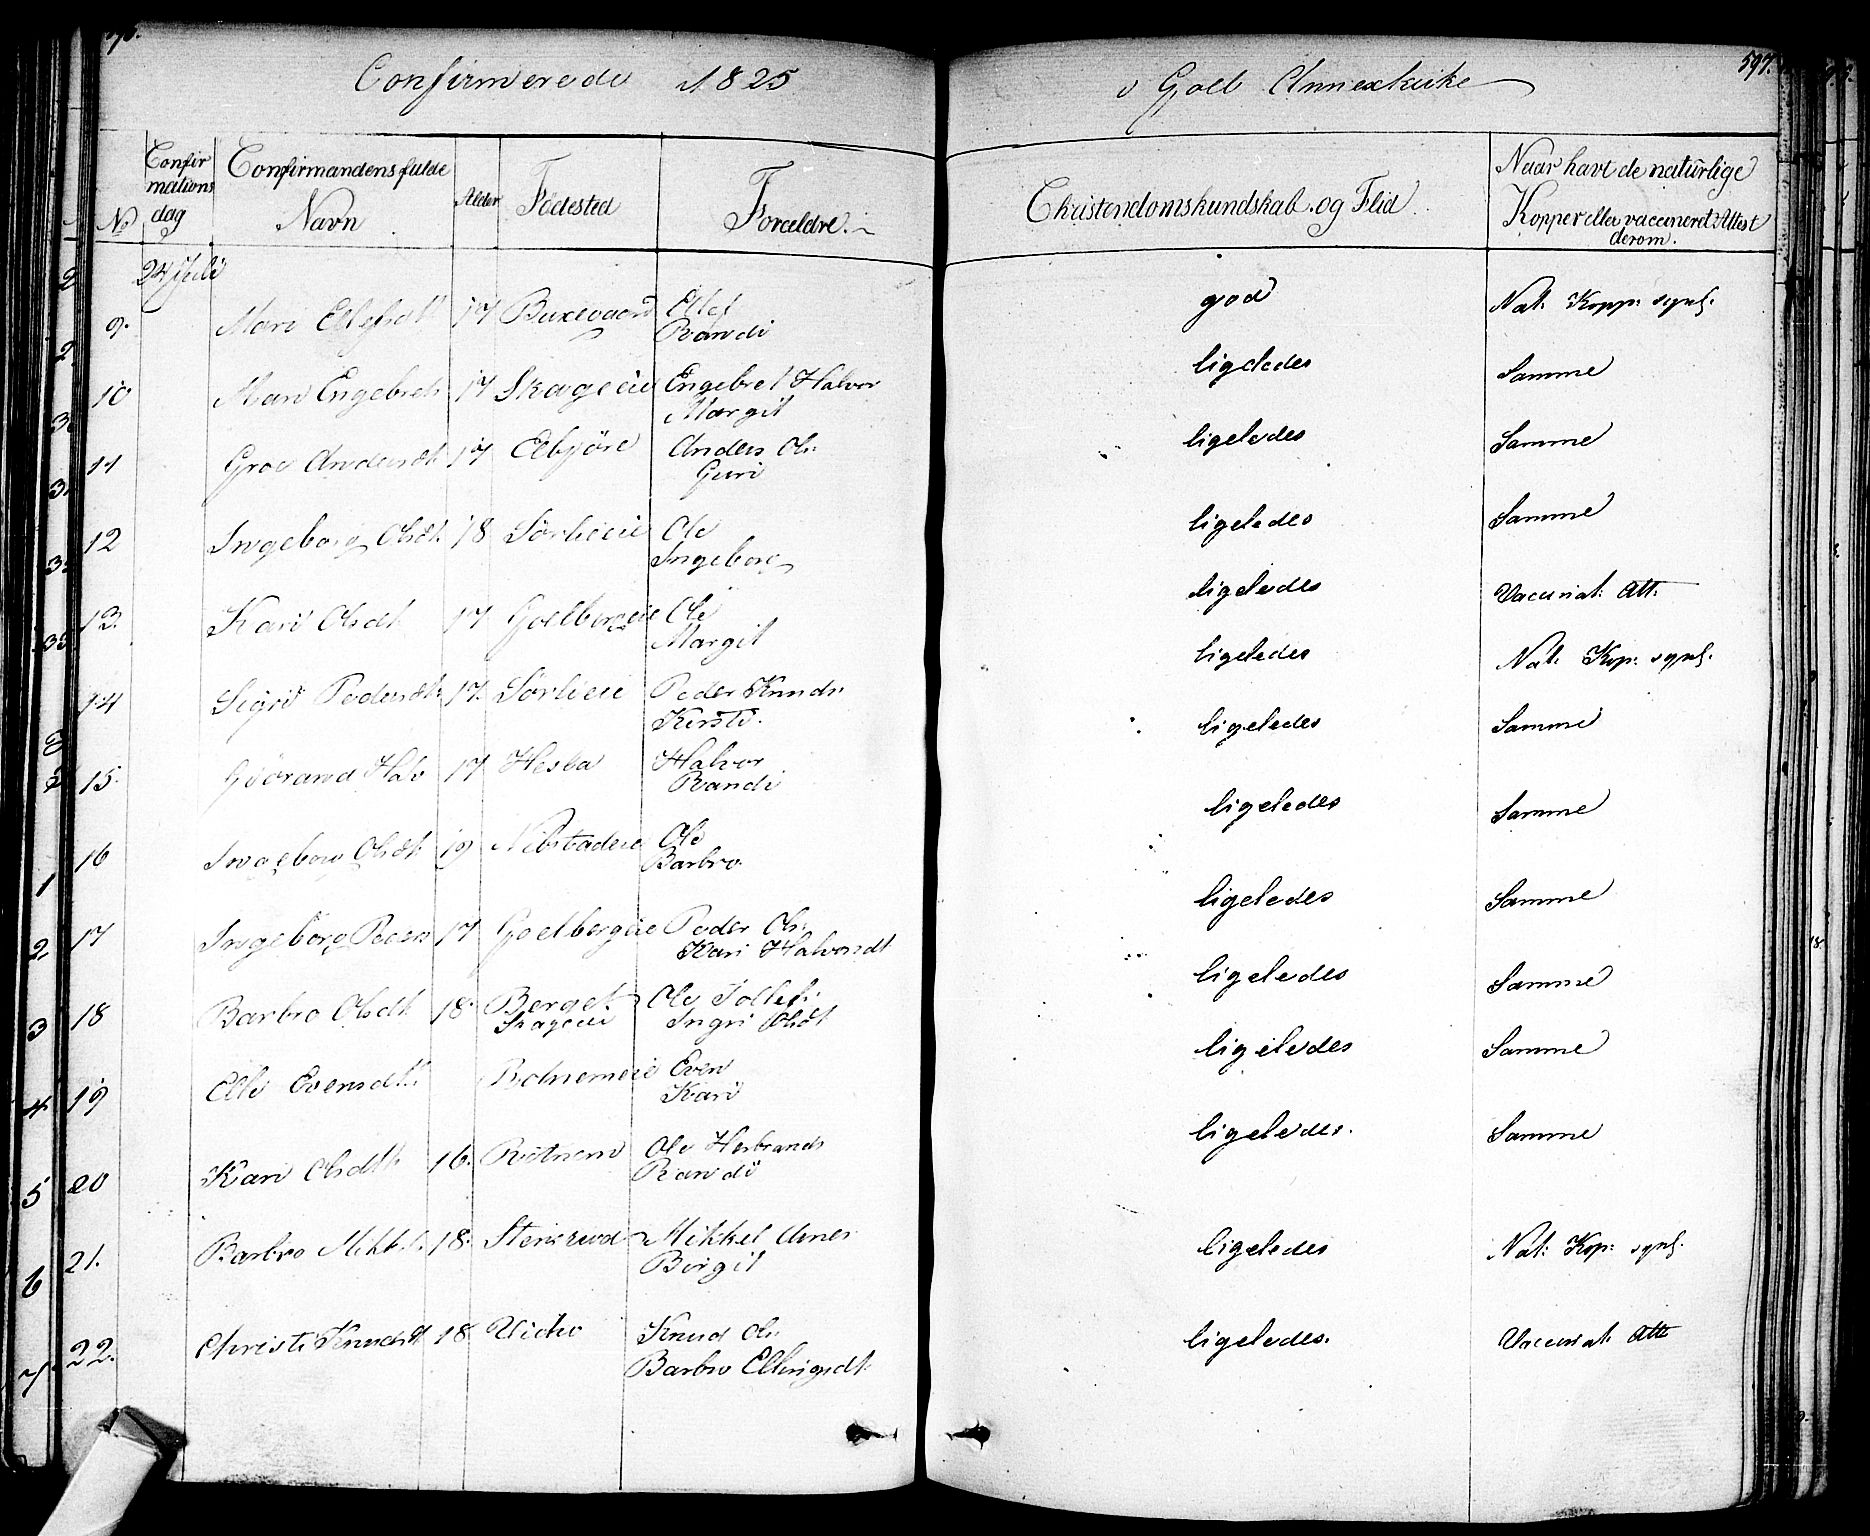 Confirmerede 1825
i Goel Annexkirke
597.
No
Confirmations dag
Confirmandens fulde Navn
Alder
Födested
Forældre.
Christendomskundskab og Flid
Naar havt de naturlige Kopper eller vaccinert Attest derom.
24 Juli
9. Mari Ellefsdt 17 Buxevaard Ellef god Nat: Kopp: synl.
Randi
10 Mari Engebrets 17 Skageeie Engebret Halvor ligeledes Samme
Margit
11 Groe Andersdt 17 Elbjöre Anders Ols: ligeledes Samme
Guri
12 Ingeborg Olsdt 18 Sörlieeie Ole ligeledes Samme
Ingeborg
13. Kari Olsdt 17 Goelbergeie Ole ligeledes Vaccinat: Att:
Margit
14 Sigri Pedersdt 17. Sörlieeie Peder Knuds ligeledes Nat: Kop: synl.
Kirsti.
15. Gjörand Halv 17 Hesla Halvor ligeledes Samme
Randi
16 Ingeborg Olsdt 19 Nibstadeie Ole ligeledes Samme
Barbro
17 Ingeborg Peders 17 Goelbergeie Peder Ols: ligeledes Samme
Kari Halvorsdt
18 Barbro Olsdt 18. Berget Ole Tollefs: ligeledes Samme
Skageeie Ingri Olsdt
19 Elli Evensdt. Rotnemeie Even ligeledes Samme
Kari
20 Kari Olsdt 16. Rotnem Ole Herbrands ligeledes. Samme
Randi
21. Barbro Mikkels. 18. Stensrud Mikkel Arnes ligeledes Nat: Kop: synl.
Birgit
22. Christi Knudsdt 18. Knud Ols: ligeledes. Vaccinat: Att:
Barbro Ellingsdt.